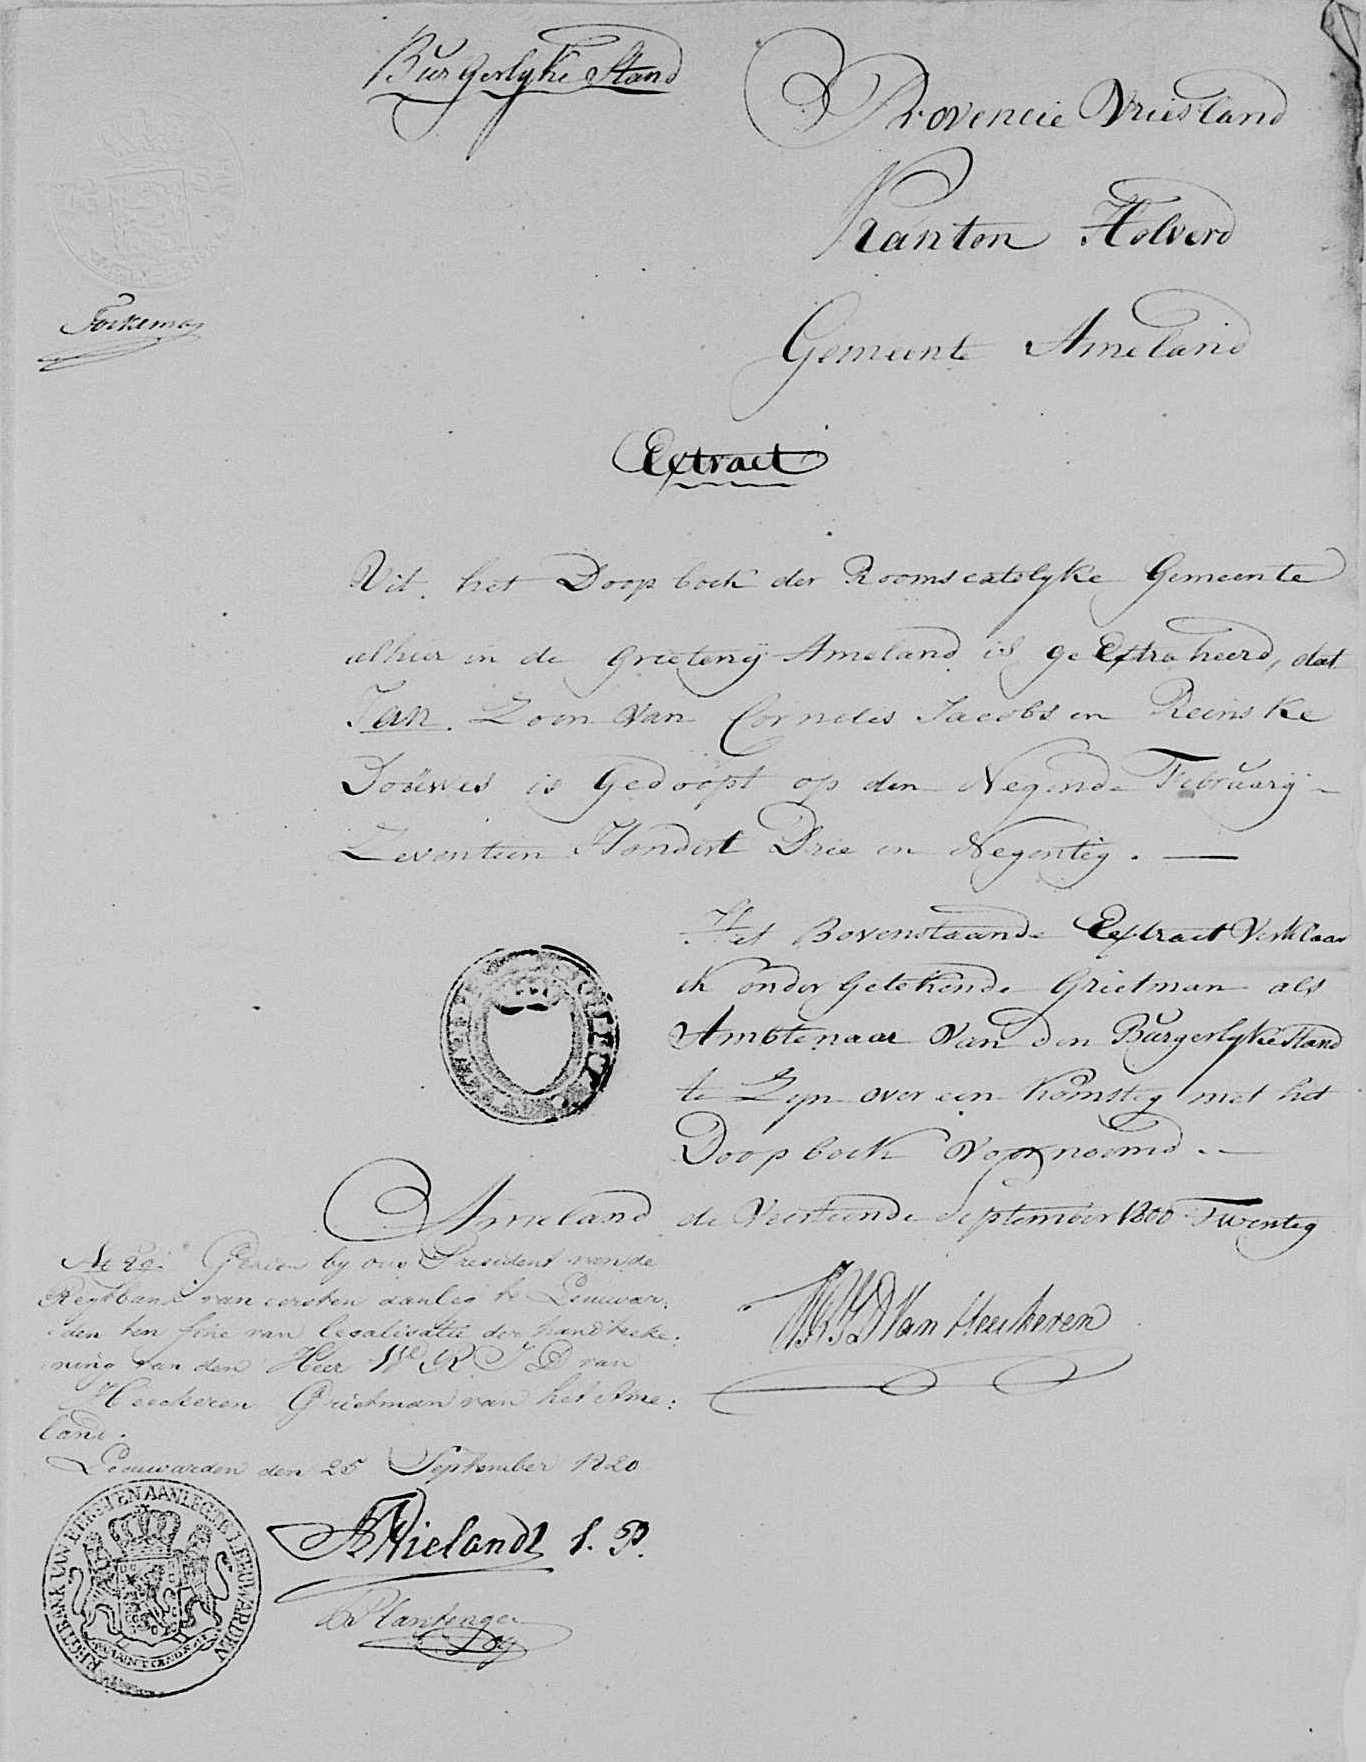 Burgerlyke Stand
Provencie Vriesland
Kanton Holverd
Gemeente Ameland
Fockema
Extract
Uit het Doop boek der Roomscatolyke Gemeente
alhier in de Grieteny Ameland is geExtraheerd, dat
Jan Zoon van Cornelis Jacobs en Reinske
Douwes is Gedoopt op den Negende Februarij
Zeventien Hondert Drie en Negentig.
Het Bovenstaande Extract Verklaar
ik onder Getekende Grietman als
Ambtenaar van den Burgerlyke Stand
te Zyn over een komstig met het
Doop boek voornoemd.
Ameland de Veertiende September 1800 Twentig
W R J D Van Heeckeren
Gezien by ons President van de
Regtbank van eersten aanleg te Leeuwar:
den ten fine van legalisatie der handteeke:
ning van den Heer W R J D van
Heeckeren Grietman van het Ame:
land.
Leeuwarden den 25 September 1820
REGTBANK VAN EERSTEN AANLEG TE LEEUWARDEN